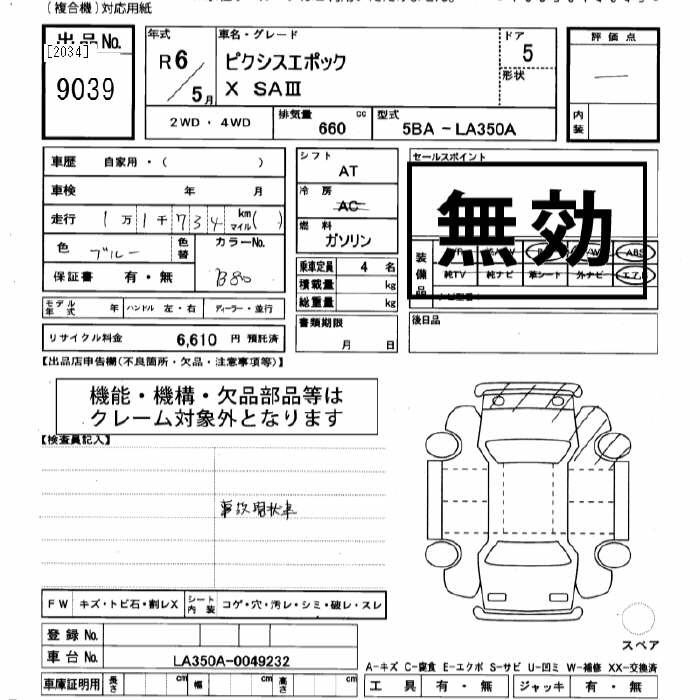 (複合機)対応用紙
出品No. 年式 車名・グレード ドア 評価点
[2034] R6 ピクシスエポック 5
9039 5月 X SAⅢ 形状
2WD・4WD 排気量 cc 型式 内装
660 5BA-LA350A
車歴 自家用・( ) シフト セールスポイント
AT
車検 年 月 冷房 AC
走行 1万1千734 km マイル( ) 燃料 ガソリン 無効
色 ブルー 色替 カラーNo. B80
乗車定員 4 名 装備品 ABS
保証書 有・無 純TV 純ナビ 革シート 外ナビ エアB
積載量 kg
モデル年式 年 ハンドル 左・右 ディーラー・並行 総重量 kg
リサイクル料金 6,610 円 預託済 書類期限 月 日 後日品
【出品店申告欄(不良箇所・欠品・注意事項等)】
機能・機構・欠品部品等は
クレーム対象外となります
【検査員記入】
事故現状車
FW キズ・トビ石・割レX シート内装 コゲ・穴・汚レ・シミ・破レ・スレ
登録No.
スペア
車台No. LA350A-0049232
A-キズ C-腐食 E-エクボ S-サビ U-凹ミ W-補修 XX-交換済
車庫証明用 長さ cm 幅 cm 高さ cm 工具 有・無 ジャッキ 有・無